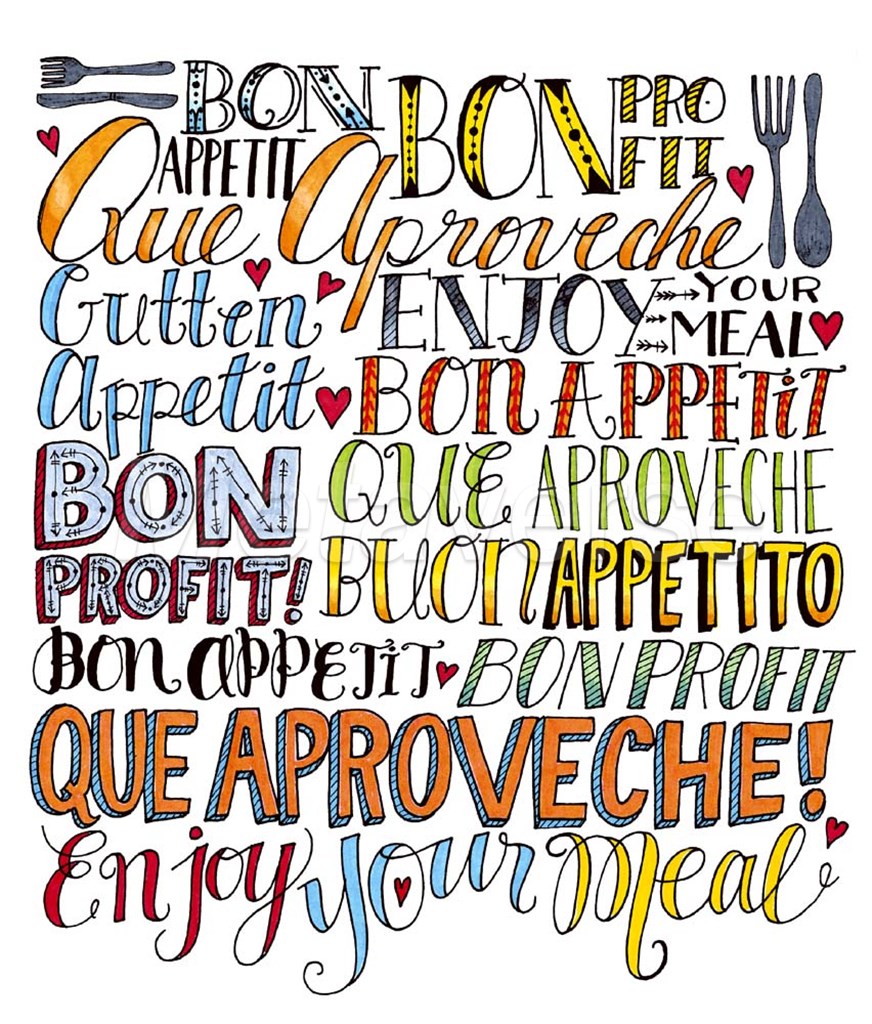 BON APPETIT
BON PROFIT
Que Aproveche
Gutten Appetit
ENJOY YOUR MEAL
BON APPETiT
BON PROFIT!
QUE APROVECHE
BUON APPETITO
Bon appetit
BON PROFIT
QUE APROVECHE!
Enjoy your Meal
Metaverse